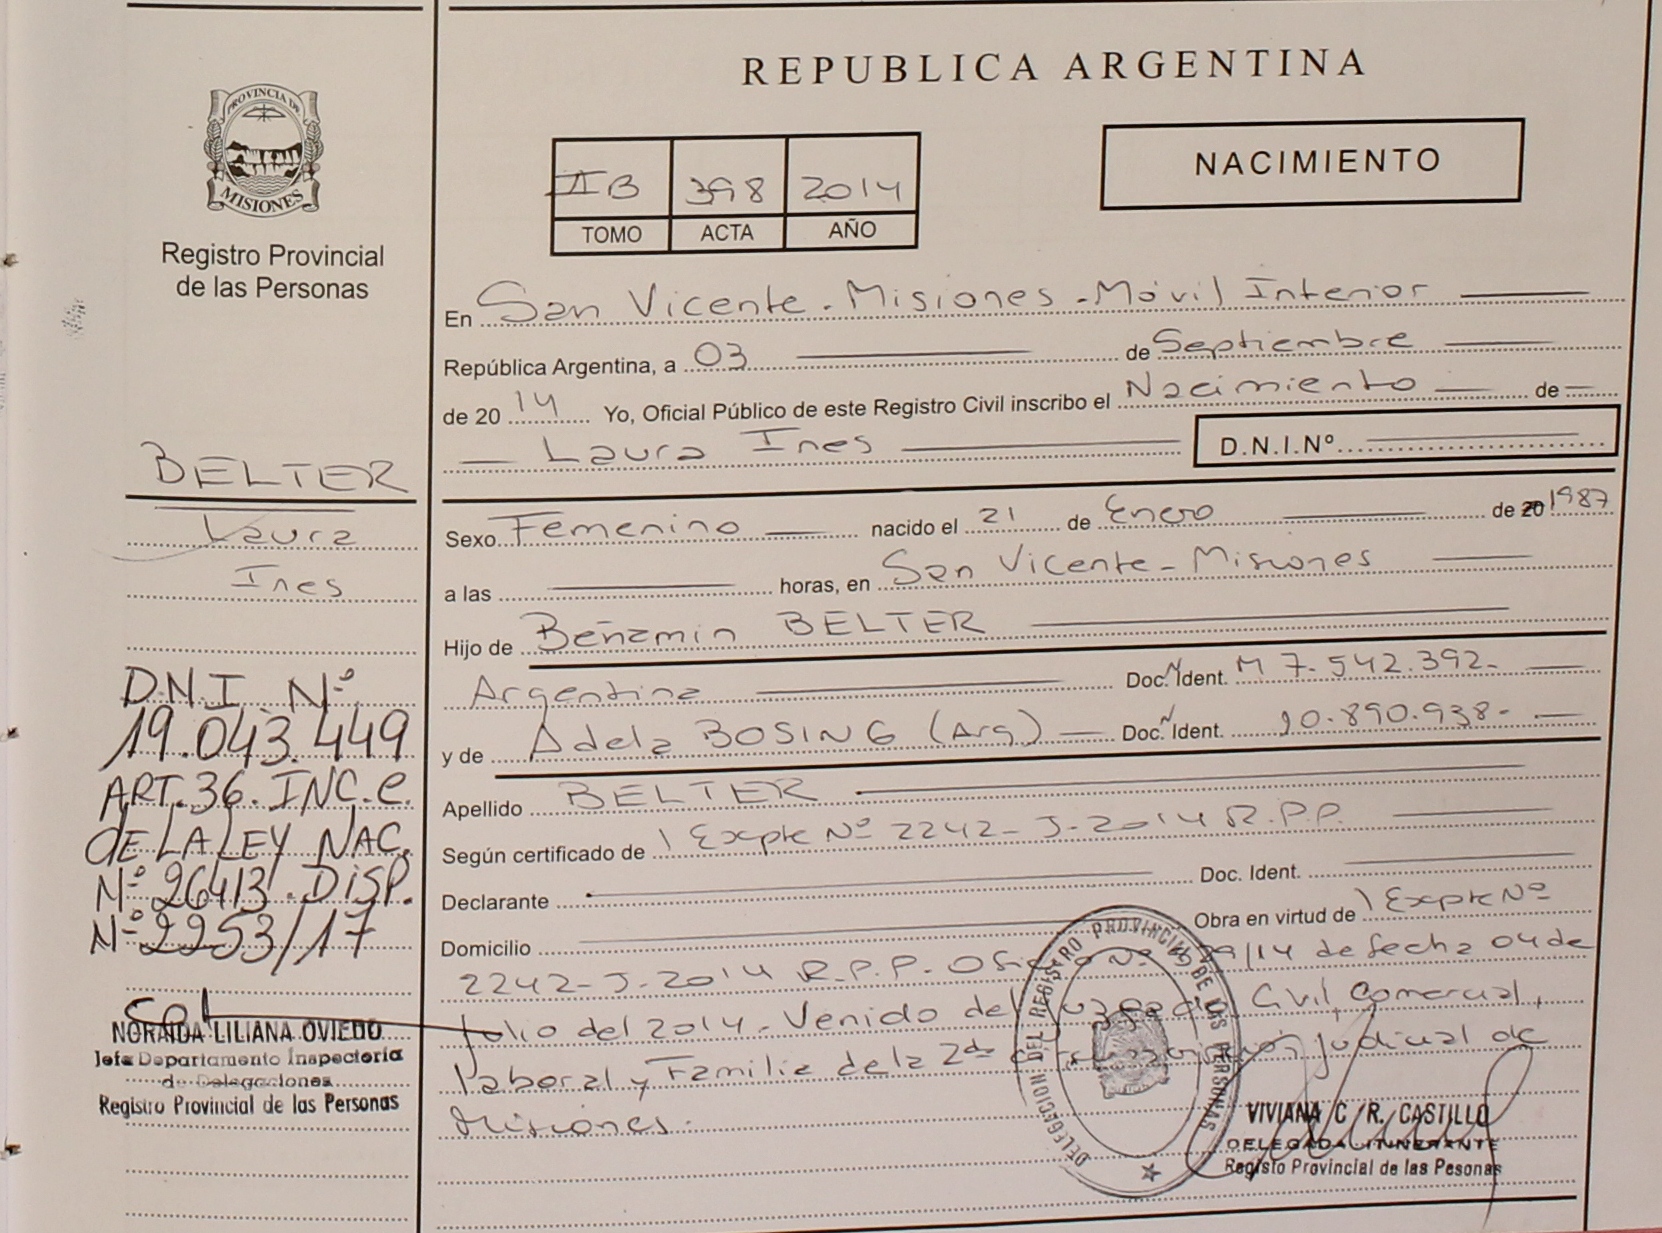 REPUBLICA ARGENTINA
PROVINCIA DE
MISIONES
Registro Provincial
de las Personas
II B 398 2014
TOMO ACTA AÑO
NACIMIENTO
En San Vicente - Misiones - Móvil Interior
República Argentina, a 03 de Septiembre
de 2014 Yo, Oficial Público de este Registro Civil inscribo el Nacimiento de
Laura Ines D.N.I.Nº
Sexo Femenino nacido el 21 de Enero de 20 1987
a las horas, en San Vicente - Misiones
Hijo de Beñamin BELTER
Argentina Doc. Ident. M 7.542.392-
y de Adela BOSING (Arg) Doc. Ident. 10.890.938-
Apellido BELTER
Según certificado de Expte Nº 2242-J-2014 R.P.P.
Declarante Doc. Ident.
Domicilio Obra en virtud de Expte Nº
2242-J-2014 R.P.P. Oficio Nº /14 de fecha 04 de
Julio del 2014. Venido del Juzgado Civil, Comercial,
Laboral y Familia de la 2da Circunscripción Judicial de
Misiones.
DELEGACION DEL REGISTRO PROVINCIAL DE LAS PERSONAS
VIVIANA C. R. CASTILLO
DELEGADA ITINERANTE
Registo Provincial de las Pesonas
BELTER
Laura
Ines
D.N.I. Nº
19.043.449
ART.36.INC.C.
DE LA LEY NAC.
Nº 26413. DISP.
Nº 2253/17
NORAIDA LILIANA OVIEDO
Jefa Departamento Inspectoria
de Delegaciones
Registro Provincial de las Personas